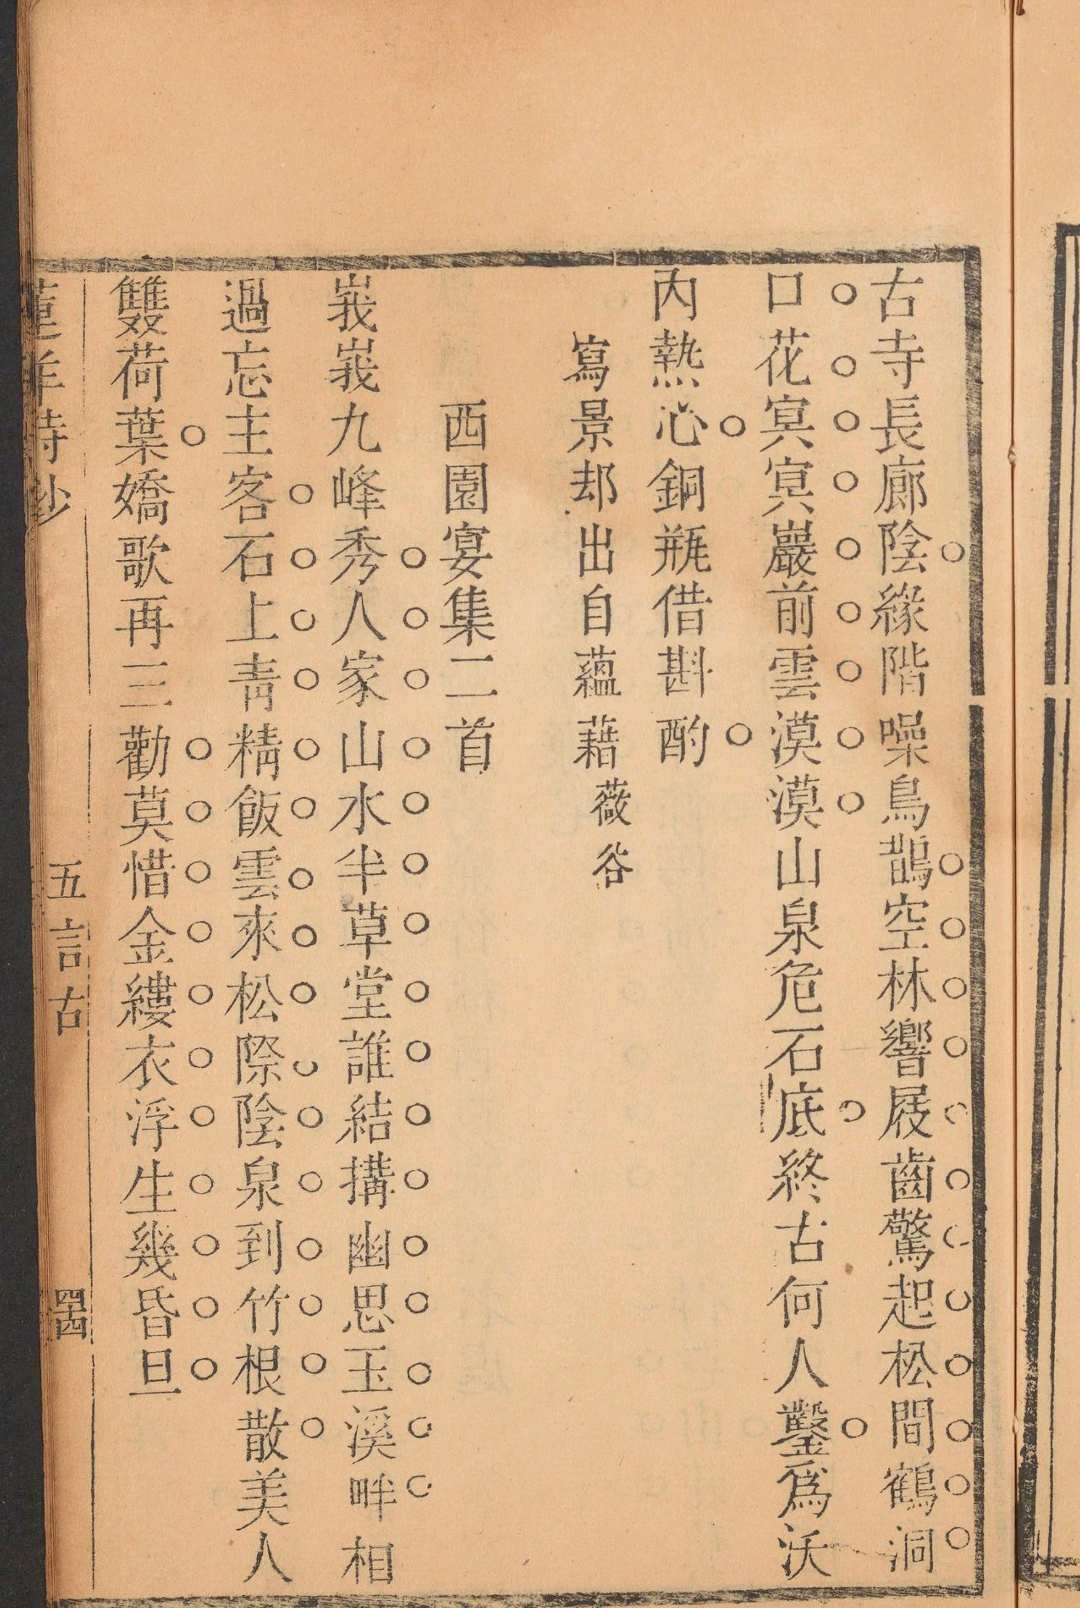 古寺長廊陰緣階噪鳥鵲空林響屐齒驚起松間鶴洞
口花冥冥巖前雲漠漠山泉危石底終古何人鑿爲沃
內熱心銅瓶借斟酌
寫景却出自蘊藉薇谷
西園宴集二首
峩峩九峰秀人家山水半草堂誰結搆幽思玉溪畔相
過忘主客石上靑精飯雲來松際陰泉到竹根散美人
雙荷葉嬌歌再三勸莫惜金縷衣浮生幾昏旦
蓮洋詩鈔
五言古
罣